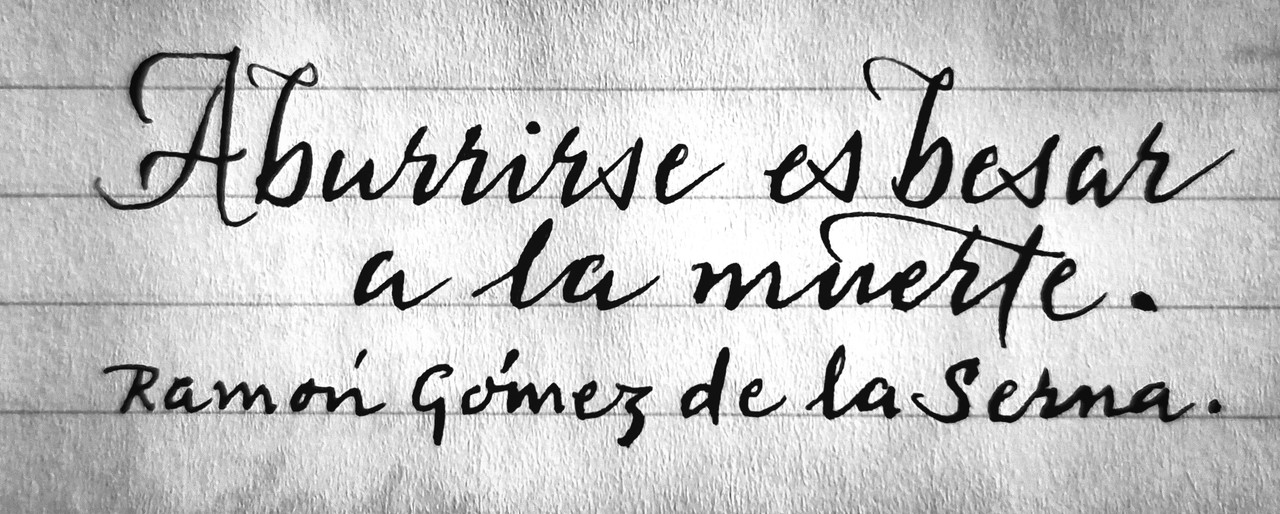 Aburrirse es besar
a la muerte.
Ramón Gómez de la Serna.